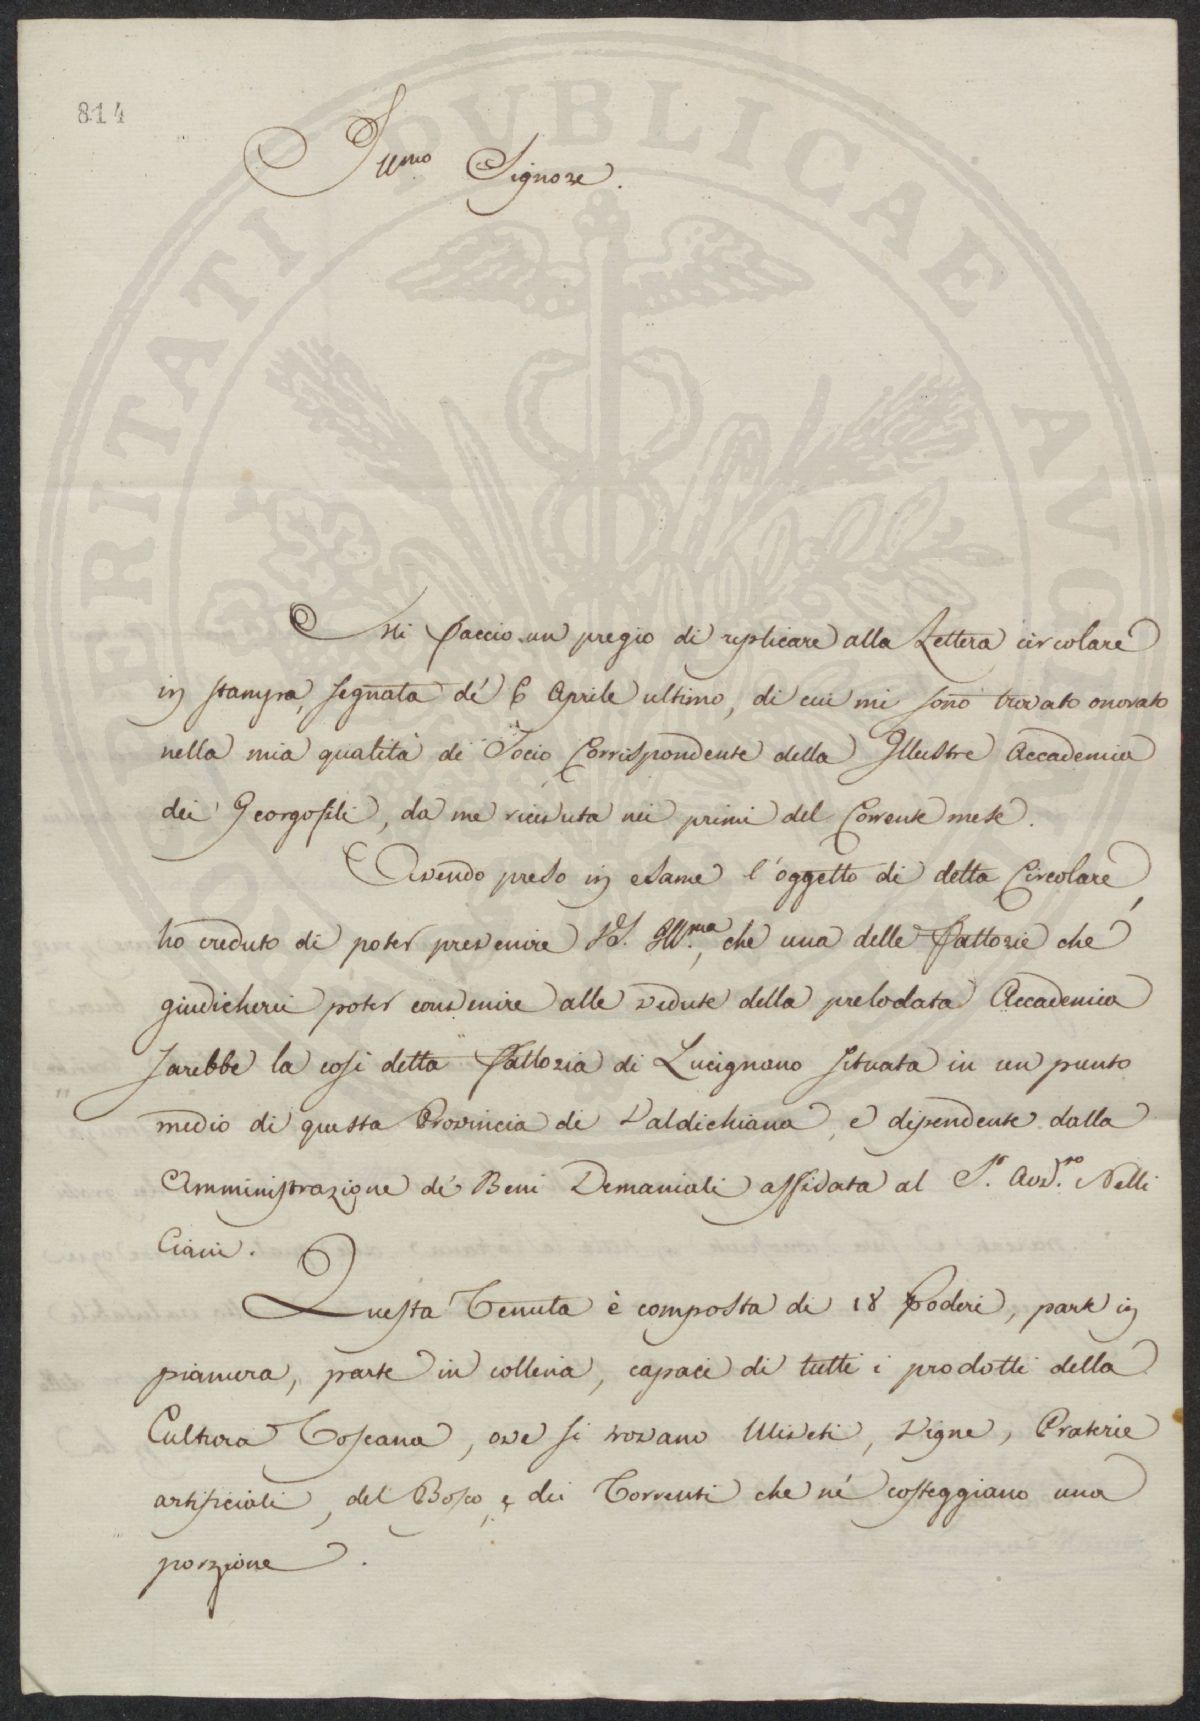 814
Illmo Signore.
PROSPERITATI PUBLICAE AUGENDAE
Mi faccio un pregio di replicare alla Lettera circolare
in stampa, segnata de' 6 Aprile ultimo, di cui mi sono trovato onorato
nella mia qualità di Socio Corrispondente della Illustre Accademia
dei Georgofili, da me ricevuta nei primi del Corrente mese.
Avendo preso in esame l'oggetto di detta Circolare,
ho creduto di poter prevenire VS. Ill.ma, che una delle Fattorie che
giudicherei poter convenire alle vedute della prelodata Accademia
sarebbe la così detta Fattoria di Lucignano situata in un punto
medio di questa Provincia di Valdichiana, e dipendente dalla
Amministrazione de' Beni Demaniali affidata al S.r Nelli
Ciani.
Questa Tenuta è composta di 18 Poderi, parte in
pianura, parte in collina, capaci di tutti i prodotti della
Cultura Toscana, ove si trovano Uliveti, Vigne, Praterie
artificiali, del Bosco, e dei Torrenti che né costeggiano una
porzione.